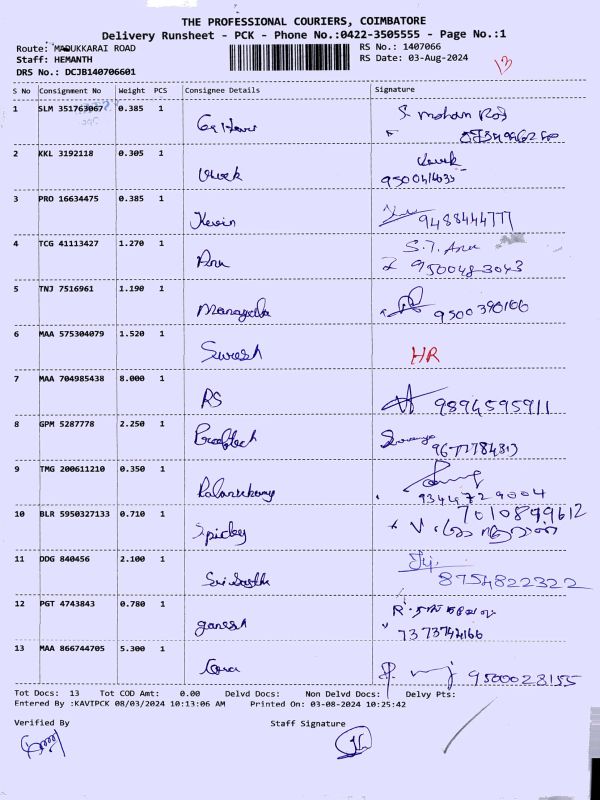 THE PROFESSIONAL COURIERS, COIMBATORE
Delivery Runsheet - PCK - Phone No.:0422-3505555 - Page No.:1
Route: MADUKKARAI ROAD RS No.: 1407066
Staff: HEMANTH RS Date: 03-Aug-2024
DRS No.: DCJB140706601 13
S No Consignment No Weight PCS Consignee Details Signature
1 SLM 351763067 0.385 1 S. Mohan
2 KKL 3192118 0.305 1 Vivek
3 PRO 16634475 0.385 1 Kevin 9488444777
4 TCG 41113427 1.270 1 Anu S.T. Anu
9500483043
5 TNJ 7516961 1.190 1 9500390106
6 MAA 575304079 1.520 1 Suresh HR
7 MAA 704985438 8.000 1 RS 9894595911
8 GPM 5287778 2.250 1 9677784313
9 TMG 200611210 0.350 1
9344729004
10 BLR 5950327133 0.710 1 7010899612
11 DDG 840456 2.100 1 8754822322
12 PGT 4743843 0.780 1 ganesh
7373744166
13 MAA 866744705 5.300 1 9500028155
Tot Docs: 13 Tot COD Amt: 0.00 Delvd Docs: Non Delvd Docs: Delvy Pts:
Entered By :KAVIPCK 08/03/2024 10:13:06 AM Printed On: 03-08-2024 10:25:42
Verified By Staff Signature